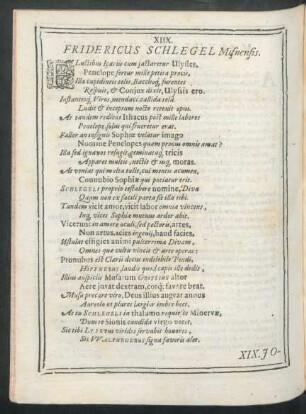 XIIX.
FRIDERICUS SCHLEGEL Misnensis.
Fluctibus Icariis cum jactaretur Ulysses,
Penelope fertur mille petita procis.
Illa cupidineis telis, Bacchoq; furentes
Respuit, & Conjux dixit, Ulyssis ero.
Instanteiq; Viros, mendaci callida telâ
Ludit & inceptum nocte retexit opus.
At tandem reditus Ithacus post mille labores
Penelope solus quî frueretur erat.
Fallor an insignis Sophiæ velatur imago
Nomine Penelopes quam procus omnis amat?
Illa sed ignavos refugit, geminatq; tricis
Apparet multis, noctis & inq; moras.
At veniat qui multa tulit, cui mens acumen,
Connubio Sophiæ qui potiatur erit.
SCHLEGELI proprio testabere nomine, Diva
Quàm non ex facili parta sit illa tibi.
Tandem vicit amor, vicit labor omnia vincens,
Inq; vices Sophiæ mutuus ardor abit.
Vicerunt in amore oculi, sed pectora, artes,
Non artus, acies ingenij, haud facies.
Omnes qua cultu vincis & arte operas:
Pronubus est Clarii decus indelebile Pindi,
HIPPEUSI, laudis quod capis ille dedit,
Illius auspiciis Musarum
Aere juvat dextram, conq; favere breat.
Musa precare viro, Deus illius augeat annos
Aurea is ut plures largiat imbre beet.
At tu SCHLEGELI in thalamo requiesce Minervæ,
Dum re Sionis candida virgo vocet.
Sic tibi LYSTUS viridis servabit honores,
Sic VV ALTHERUS signa favoris alet.
XIX. JO-